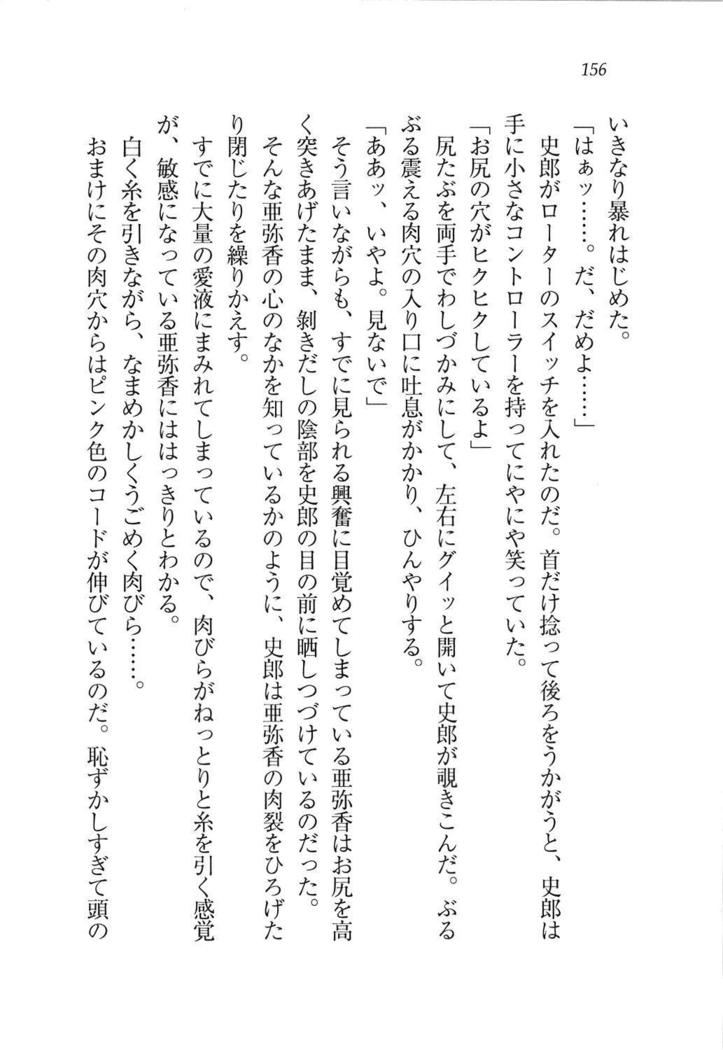 156
いきなり暴れはじめた。
「はぁッ……。だ、だめよ……」
史郎がローターのスイッチを入れたのだ。首だけ捻って後ろをうかがうと、史郎は
手に小さなコントローラーを持ってにやにや笑っていた。
「お尻の穴がヒクヒクしているよ」
尻たぶを両手でわしづかみにして、左右にグイッと開いて史郎が覗きこんだ。ぶる
ぶる震える肉穴の入り口に吐息がかかり、ひんやりする。
「ああッ、いやよ。見ないで」
そう言いながらも、すでに見られる興奮に目覚めてしまっている亜弥香はお尻を高
く突きあげたまま、剝きだしの陰部を史郎の目の前に晒しつづけているのだった。
そんな亜弥香の心のなかを知っているかのように、史郎は亜弥香の肉裂をひろげた
り閉じたりを繰りかえす。
すでに大量の愛液にまみれてしまっているので、肉びらがねっとりと糸を引く感覚
が、敏感になっている亜弥香にははっきりとわかる。
白く糸を引きながら、なまめかしくうごめく肉びら……。
おまけにその肉穴からはピンク色のコードが伸びているのだ。恥ずかしすぎて頭の